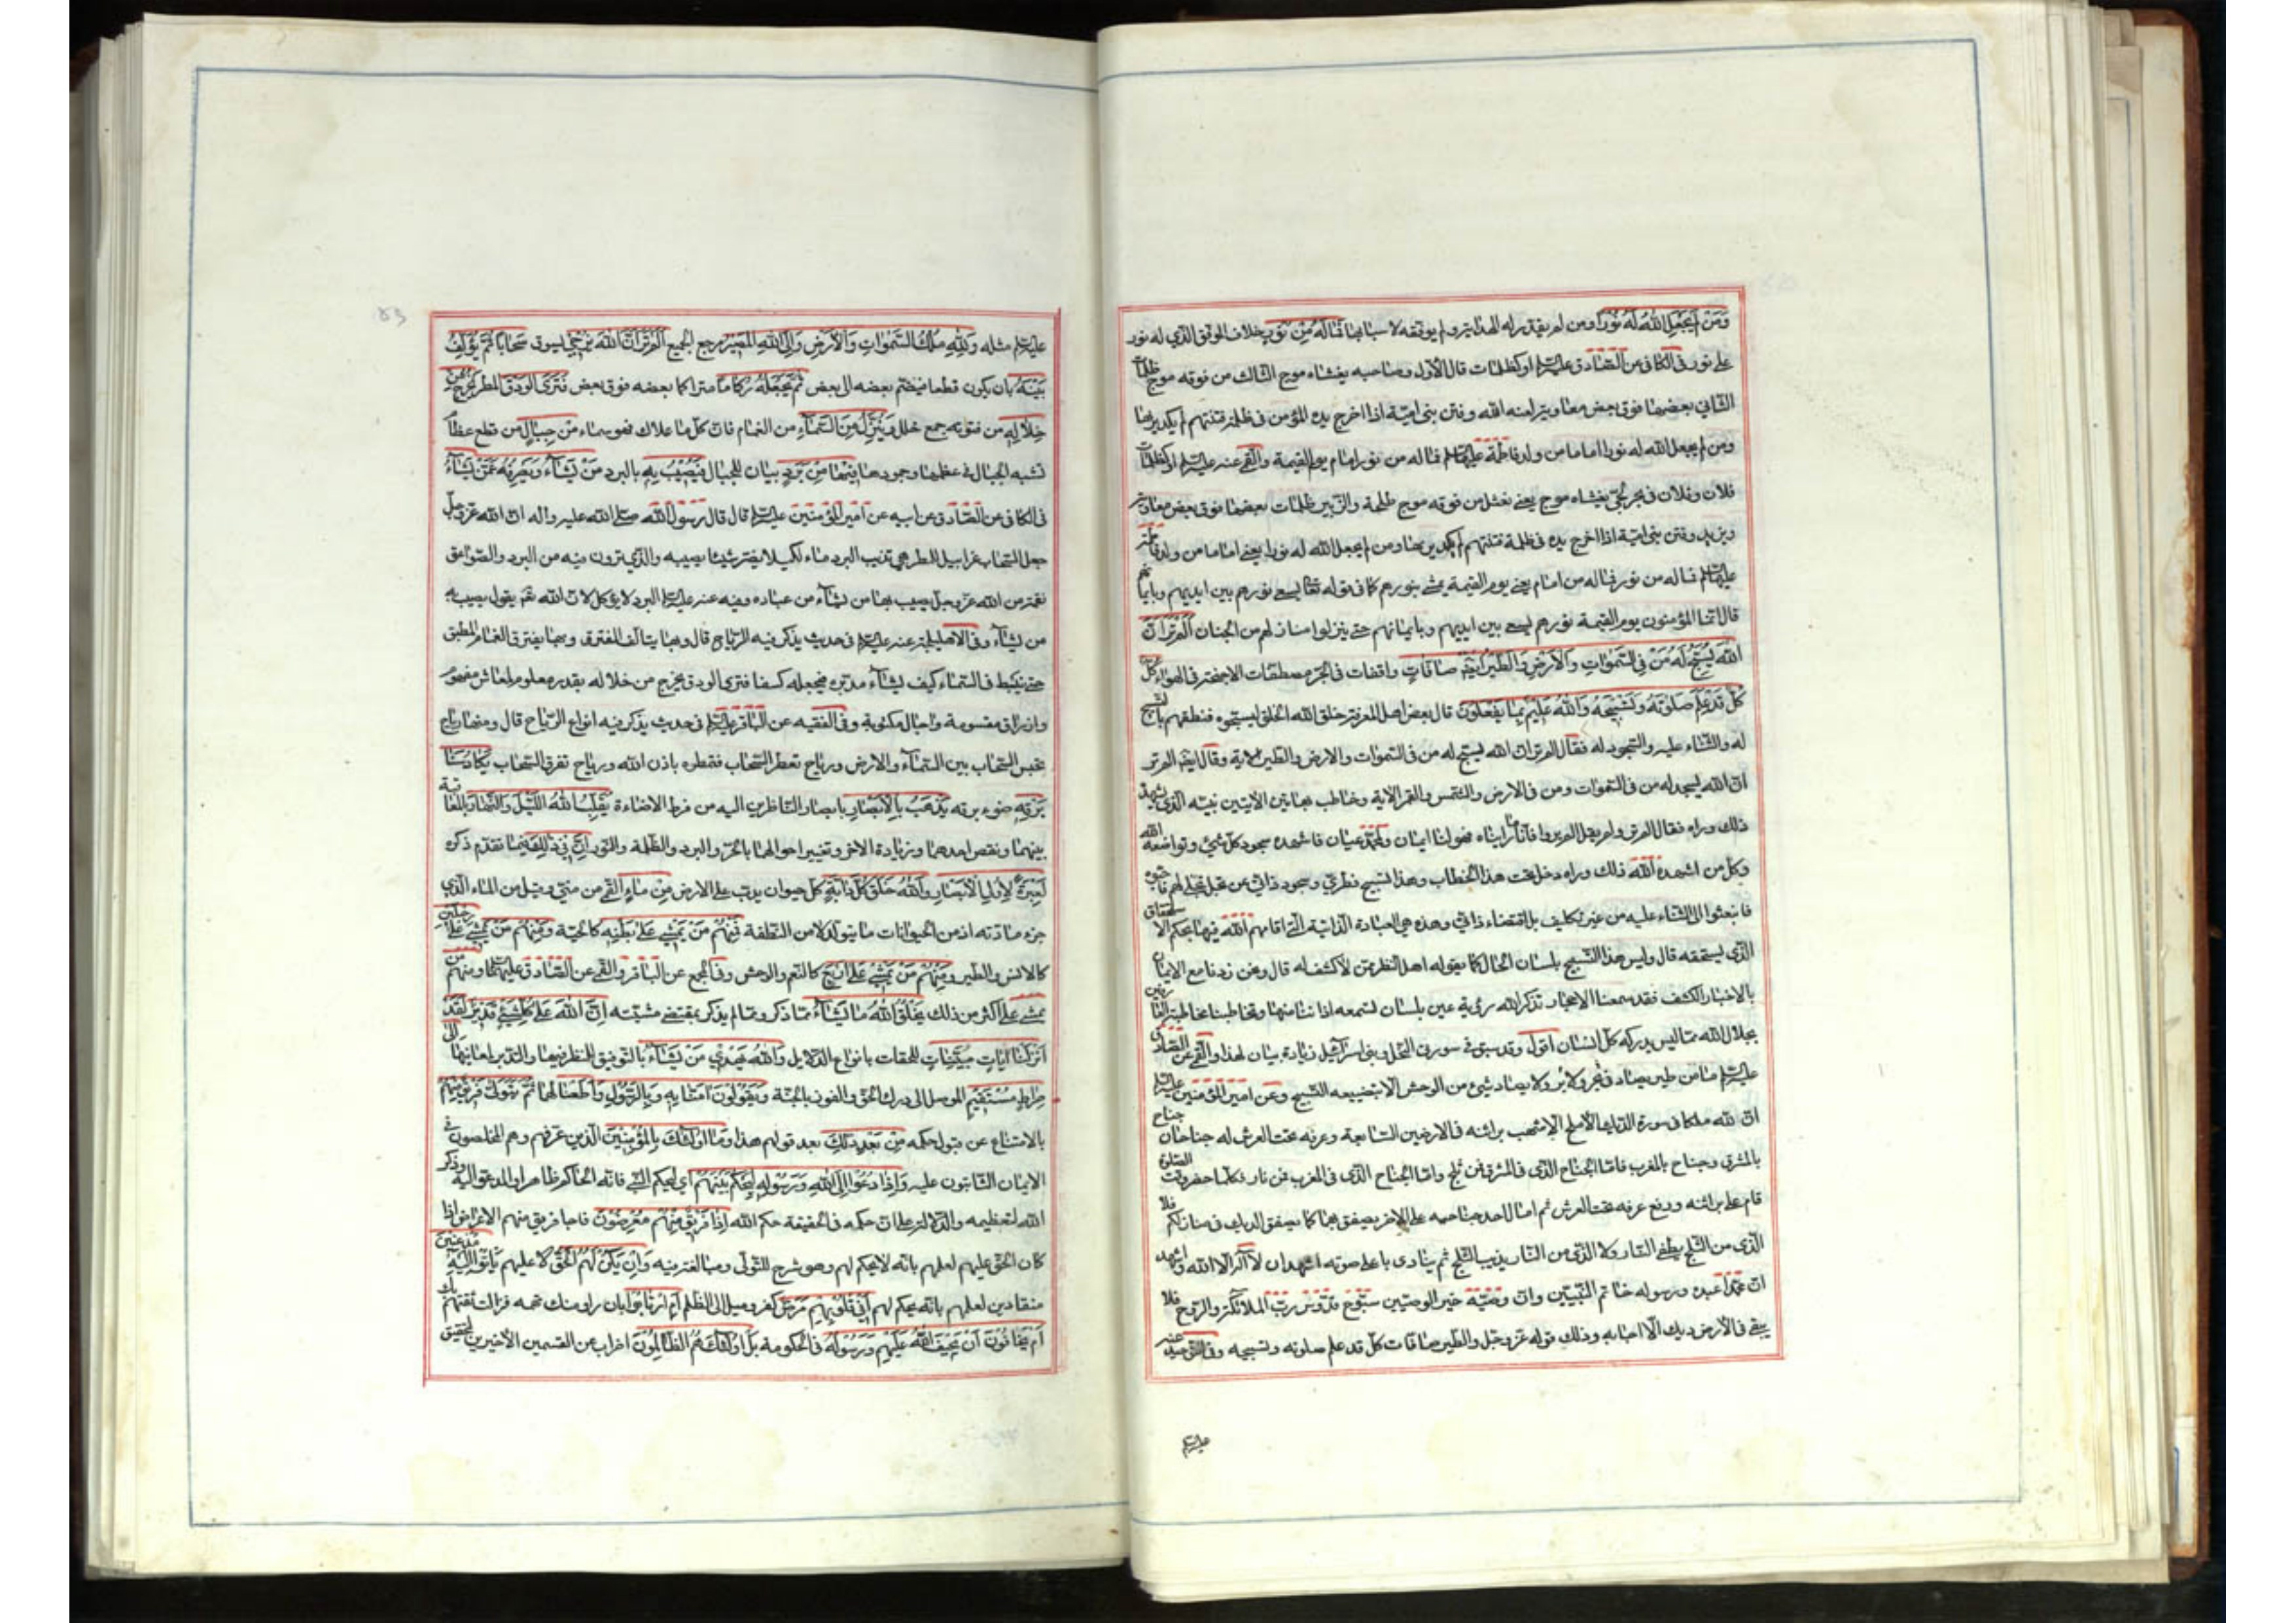 وَمَنْ لَمْ يَجْعَلِ اللّٰهُ لَهُ نُورًا ومن لم يقدر له الهداية ولم يوفقه لاسبابها فَمَا لَهُ مِنْ نُورٍ خلاف الموفق الذي له نور
على نور في الكافي عن الصّادق عليه السلم او كظلمات قال الاول وصاحبه يغشاه موج الثالث من فوقه موج ظلمات
الثاني بعضها فوق بعض معاوية لعنه الله وفتن بني اميّة اذا اخرج يده المؤمن في ظلمة فتنتهم لم يكد يريها
ومن لم يجعل الله له نورا اماما من ولد فاطمة عليها السلم فما له من نور امام يوم القيمة والقمّي عنه عليه السلم او كظلمات
فلان وفلان في بحر لجّي يغشاه موج يعني نعثل من فوقه موج طلحة والزّبير ظلمات بعضها فوق بعض معاوية
ويزيد وفتن بني اميّة اذا اخرج يده في ظلمة فتنتهم لم يكد يريها ومن لم يجعل الله له نورا يعني اماما من ولد فاطمة
عليها السلم فما له من نور فما له من امام يعني يوم القيمة يمشي بنوره كما في قوله تعالى يسعى نورهم بين ايديهم وبايمانهم
قال انما المؤمنون يوم القيمة نورهم يسعى بين ايديهم وبايمانهم حتى ينزلوا منازلهم من الجنان أَلَمْ تَرَ أَنَّ
اللّٰهَ يُسَبِّحُ لَهُ مَنْ فِي السَّمٰوَاتِ وَالْأَرْضِ وَالطَّيْرُ صَافَّاتٍ واقفات في الجوّ مصطفّات الاجنحة في الهواء
كُلٌّ قَدْ عَلِمَ صَلَوتَهُ وَتَسْبِيحَهُ وَاللّٰهُ عَلِيمٌ بِمَا يَفْعَلُونَ قال بعض اهل المعرفة خلق الله الخلق ليسبّحوه فنطقهم بالتسبيح
له والثناء عليه والسجود له فقال الم تر ان الله يسبح له من في السّموات والارض والطير الاية وقال ايضا الم تر
ان الله يسجد له من في السّموات ومن في الارض والشمس والقمر الاية وخاطب بهاتين الايتين نبيّه الذي اشهده
ذلك وراه فقال الم تر ولم يقل الم تروا فانا ما رايناه فهو لنا ايمان ولمحمّد عيان فاشهده سجود كل شيء وتواضعه لله
وكل من اشهده الله ذلك وراه دخل تحت هذا الخطاب وهذا تسبيح فطري وسجود ذاتي عن تجلّي تجلّى لهم فاحبّوه
فانبعثوا الى الثناء عليه من غير تكليف بل اقتضاء ذاتي وهذه هي العبادة الذاتية التي اقامهم الله فيها بحكم الاستحقاق
الذي يستحقه قال وليس هذا التسبيح بلسان الحال كما يقوله اهل النظر ممن لا كشف له قال ونحن زدنا مع الايمان
بالاخبار الكشف فقد سمعنا الاحجار تذكر الله رؤية عين بلسان تسمعه اذاننا منها وتخاطبنا مخاطبة العارفين
بجلال الله مما ليس يدركه كل انسان اقول وقد سبق في سورتي النحل وبني اسرائيل زيادة بيان لهذا والقمّي عن الصادق
عليه السلم ما من طير يصاد في بر ولا بحر ولا يصاد شيء من الوحش الا بتضييعه التسبيح وعن امير المؤمنين عليه السلم
ان لله ملكا في صورة الديك الاملح الاشهب براثنه في الارضين السابعة وعرفه تحت العرش له جناحان جناح
بالمشرق وجناح بالمغرب فامّا الجناح الذي في المشرق فمن ثلج وامّا الجناح الذي في المغرب فمن نار فكلما حضر وقت الصلوة
قام على براثنه ورفع عرفه تحت العرش ثم امال احد جناحيه على الاخر يصفق بهما كما يصفق الديك في منازلكم فلا
الذي من الثلج يطفي النار ولا الذي من النار يذيب الثلج ثم ينادي باعلى صوته اشهد ان لا اله الا الله واشهد
ان محمّدا عبده ورسوله خاتم النبيّين وان وصيّه خير الوصيّين سبّوح قدّوس ربّ الملائكة والرّوح فلا
يبقى في الارض ديك الا اجابه وذلك قوله عزّ وجل والطير صافات كل قد علم صلوته وتسبيحه وفي التوحيد عنه
عليه السلم
عليه السلم مثله وَلِلّٰهِ مُلْكُ السَّمٰوَاتِ وَالْأَرْضِ وَإِلَى اللّٰهِ الْمَصِيرُ مرجع الجميع أَلَمْ تَرَ أَنَّ اللّٰهَ يُزْجِي يسوق سَحَابًا ثُمَّ يُؤَلِّفُ
بَيْنَهُ بان يكون قطعا فيضم بعضه الى بعض ثُمَّ يَجْعَلُهُ رُكَامًا متراكما بعضه فوق بعض فَتَرَى الْوَدْقَ المطر يَخْرُجُ مِنْ
خِلَالِهِ من فتوقه جمع خلل وَيُنَزِّلُ مِنَ السَّمَاءِ من الغمام فانّ كل ما علاك فهو سماء مِنْ جِبَالٍ من قطع عظام
تشبه الجبال في عظمها وجمودها فِيهَا مِنْ بَرَدٍ بيان للجبال فَيُصِيبُ بِهِ بالبرد مَنْ يَشَاءُ وَيَصْرِفُهُ عَمَّنْ يَشَاءُ
في الكافي عن الصّادق عن ابيه عن امير المؤمنين عليه السلم قال قال رسول الله صلى الله عليه واله ان الله عزّ وجل
جعل السّحاب غرابيل للمطر هي تذيب البرد ماء لكيلا يضر شيئا يصيبه والذي ترون فيه من البرد والصّواعق
نقمة من الله عزّ وجل يصيب بها من يشاء من عباده وفيه عنه عليه السلم البرد لا يؤكل لان الله عز يقول يصيب به
من يشاء وفي الاهليلجة عنه عليه السلم في حديث يذكر فيه الرّياح قال وبها يتالف المفترق وبها يفترق الغمام المطبق
حتى ينبسط في السّماء كيف يشاء مدبّره فيجعله كسفا فترى الودق يخرج من خلاله بقدر معلوم لمعاش مفهوم
وارزاق مقسومة واجال مكتوبة وفي الفقيه عن الباقر عليه السلم في حديث يذكر فيه انواع الرّياح قال ومنها رياح
تحبس السّحاب بين السّماء والارض ورياح تعصر السّحاب فتمطره باذن الله ورياح تفرق السّحاب يَكَادُ سَنَا
بَرْقِهِ ضوء برقه يَذْهَبُ بِالْأَبْصَارِ بابصار الناظرين اليه من فرط الاضاءة يُقَلِّبُ اللّٰهُ اللَّيْلَ وَالنَّهَارَ بالمعاقبة
بينهما ونقص احدهما وزيادة الاخر وتغيير احوالهما بالحرّ والبرد والظلمة والنّور إِنَّ فِي ذَلِكَ فيما تقدّم ذكره
لَعِبْرَةً لِأُولِي الْأَبْصَارِ وَاللّٰهُ خَلَقَ كُلَّ دَابَّةٍ كل حيوان يدب على الارض مِنْ مَاءٍ القمّي من مني وقيل من الماء الذي
جزء مادّته اذ من الحيوانات ما يتولّد لا من النطفة فَمِنْهُمْ مَنْ يَمْشِي عَلَى بَطْنِهِ كالحيّة وَمِنْهُمْ مَنْ يَمْشِي عَلَى رِجْلَيْنِ
كالانس والطير وَمِنْهُمْ مَنْ يَمْشِي عَلَى أَرْبَعٍ كالنّعم والوحش وفي المجمع عن الباقر والقمّي عن الصّادق عليهما السلم ومنهم من
يمشي على اكثر من ذلك يَخْلُقُ اللّٰهُ مَا يَشَاءُ ممّا ذكر وممّا لم يذكر بمقتضى مشيّته إِنَّ اللّٰهَ عَلَى كُلِّ شَيْءٍ قَدِيرٌ لَقَدْ
أَنْزَلْنَا آيَاتٍ مُبَيِّنَاتٍ للحقات بانواع الدّلايل وَاللّٰهُ يَهْدِي مَنْ يَشَاءُ بالتوفيق للنظر فيها والتدبر لمعانيها إِلَى
صِرَاطٍ مُسْتَقِيمٍ الموصل الى درك الحق والفوز بالجنّة وَيَقُولُونَ آمَنَّا بِاللّٰهِ وَبِالرَّسُولِ وَأَطَعْنَا لهما ثُمَّ يَتَوَلَّى فَرِيقٌ مِنْهُمْ
بالامتناع عن قبول حكمه مِنْ بَعْدِ ذَلِكَ بعد قولهم هذا وَمَا أُولَئِكَ بِالْمُؤْمِنِينَ الذين عرفتهم وهم المخلصون في
الايمان الثابتون عليه وَإِذَا دُعُوا إِلَى اللّٰهِ وَرَسُولِهِ لِيَحْكُمَ بَيْنَهُمْ اي ليحكم النّبي فانّه الحاكم ظاهرا والمدعوّ اليه وذكر
الله لتعظيمه والدّلالة على ان حكمه في الحقيقة حكم الله إِذَا فَرِيقٌ مِنْهُمْ مُعْرِضُونَ فاجا فريق منهم الاعراض اذا
كان الحق عليهم لعلمهم بانّه لا يحكم لهم وهو شرح للتولّي ومبالغة فيه وَإِنْ يَكُنْ لَهُمُ الْحَقُّ لا عليهم يَأْتُوا إِلَيْهِ مُذْعِنِينَ
منقادين لعلمهم بانّه يحكم لهم أَفِي قُلُوبِهِمْ مَرَضٌ كفر وميل الى الظلم أَمِ ارْتَابُوا بان راوا منك تهمة فزالت ثقتهم بك
أَمْ يَخَافُونَ أَنْ يَحِيفَ اللّٰهُ عَلَيْهِمْ وَرَسُولُهُ في الحكومة بَلْ أُولَئِكَ هُمُ الظَّالِمُونَ اضراب عن القسمين الاخيرين لتحقيق